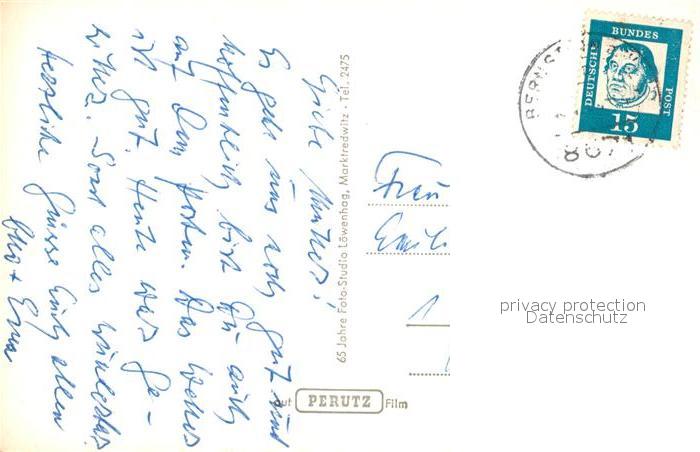 Liebe Mutter!
Es geht uns noch gut und
hoffentlich bist Du auch
auf dem Posten. Das Wetter
ist gut. Heute war Ge-
witter. Sonst alles
Herzliche Grüsse Euch allen
+ Erna
65 Jahre Foto-Studio Löwenhag, Marktredwitz - Tel. 2475
auf PERUTZ Film
Frau
Emil
1
DEUTSCHE
BUNDES
POST
15
BERNST
privacy protection
Datenschutz